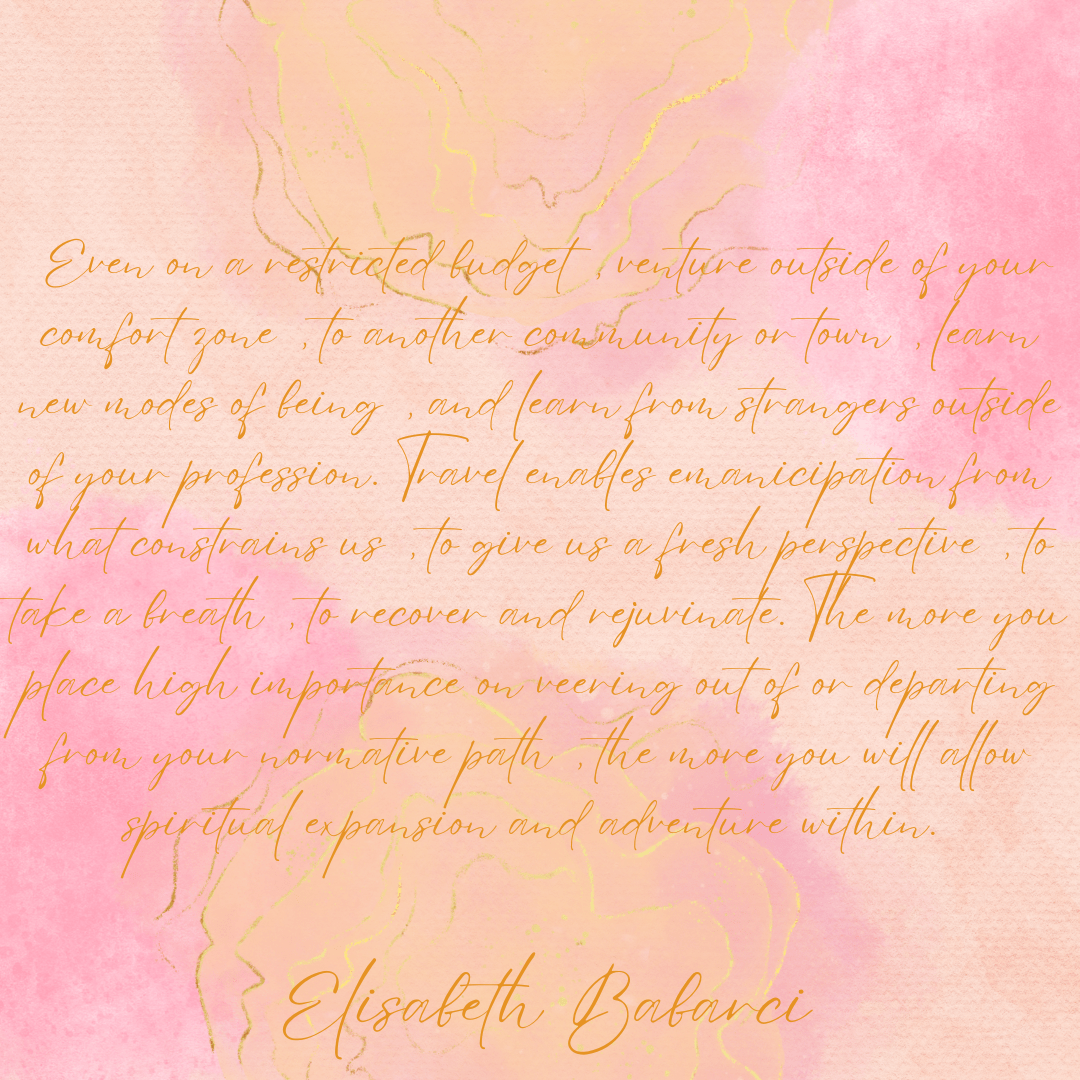 Even on a restricted budget , venture outside of your
comfort zone , to another community or town , learn
new modes of being , and learn from strangers outside
of your profession. Travel enables emanicipation from
what constrains us , to give us a fresh perspective , to
take a breath , to recover and rejuvinate. The more you
place high importance on veering out of or departing
from your normative path , the more you will allow
spiritual expansion and adventure within.
Elisabeth Babarci